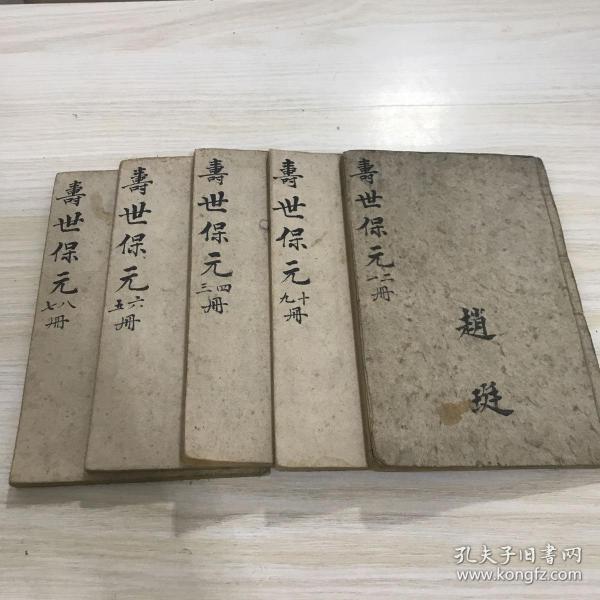 壽世保元
七八冊
壽世保元
五六冊
壽世保元
三四冊
壽世保元
九十冊
壽世保元
一二冊
趙珽
孔夫子旧書网
www.kongfz.com